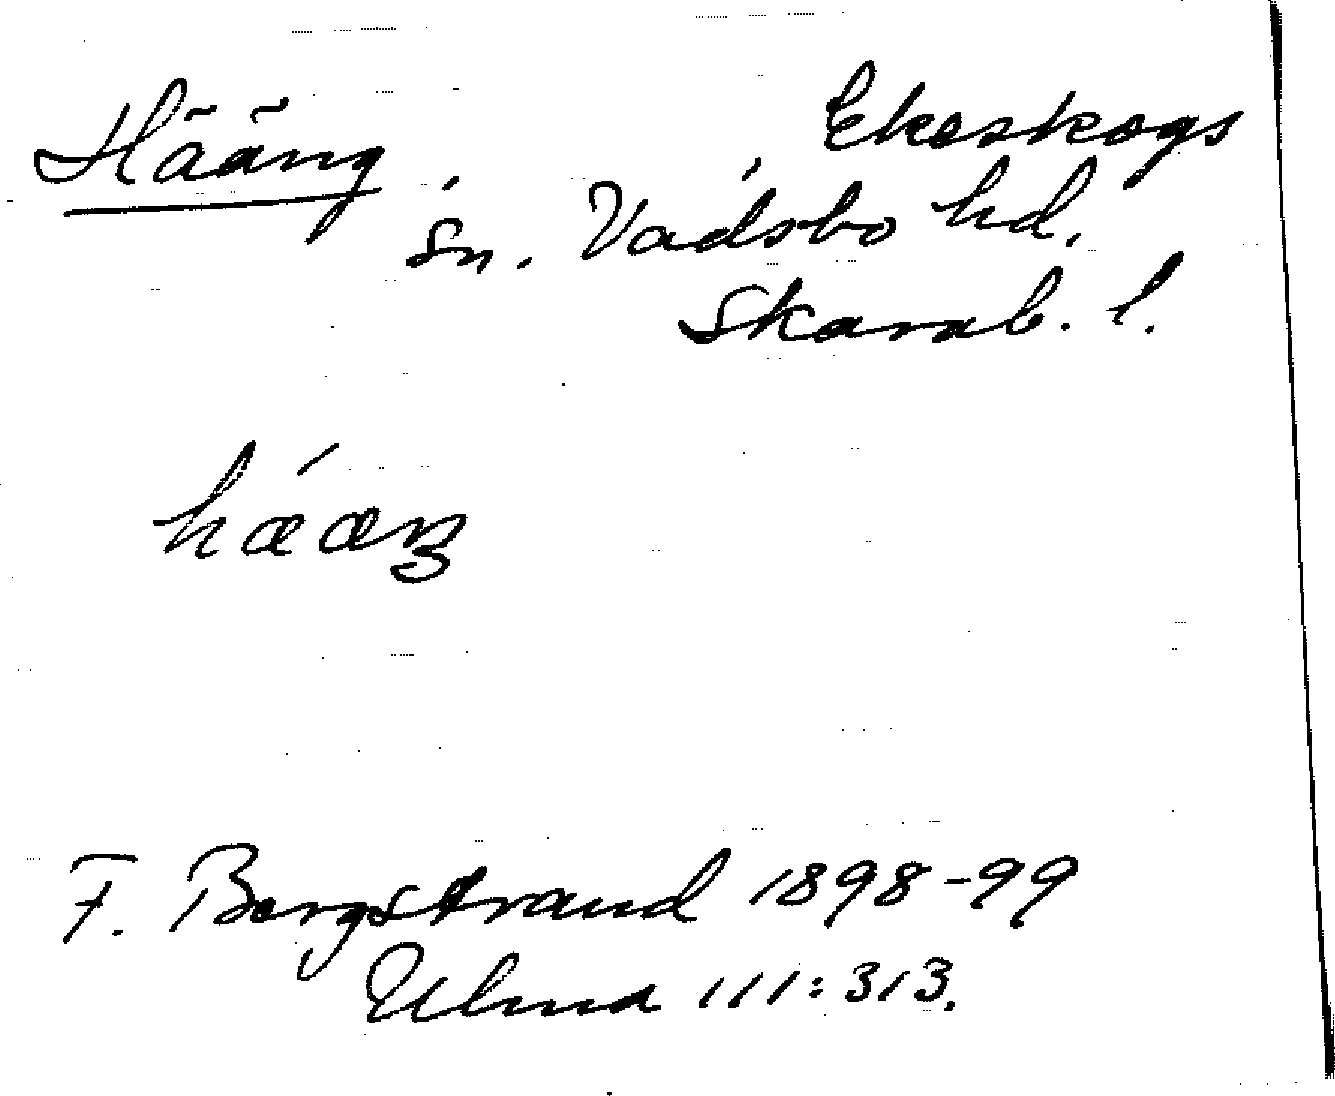 Hääng Ekeskogs
sn. Vadsbo hd.
Skarab. l.
hǽæŋ
F. Bergstrand 1898-99
Ulma 111:313.